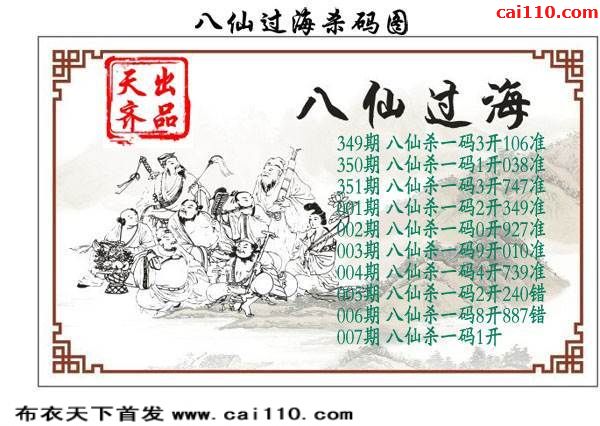 八仙过海杀码图
cai110.com
天齐
出品
八仙过海
349期 八仙杀一码3开106准
350期 八仙杀一码1开038准
351期 八仙杀一码3开747准
001期 八仙杀一码2开349准
002期 八仙杀一码0开927准
003期 八仙杀一码9开010准
004期 八仙杀一码4开739准
005期 八仙杀一码2开240错
006期 八仙杀一码8开887错
007期 八仙杀一码1开
布衣天下首发 www.cai110.com